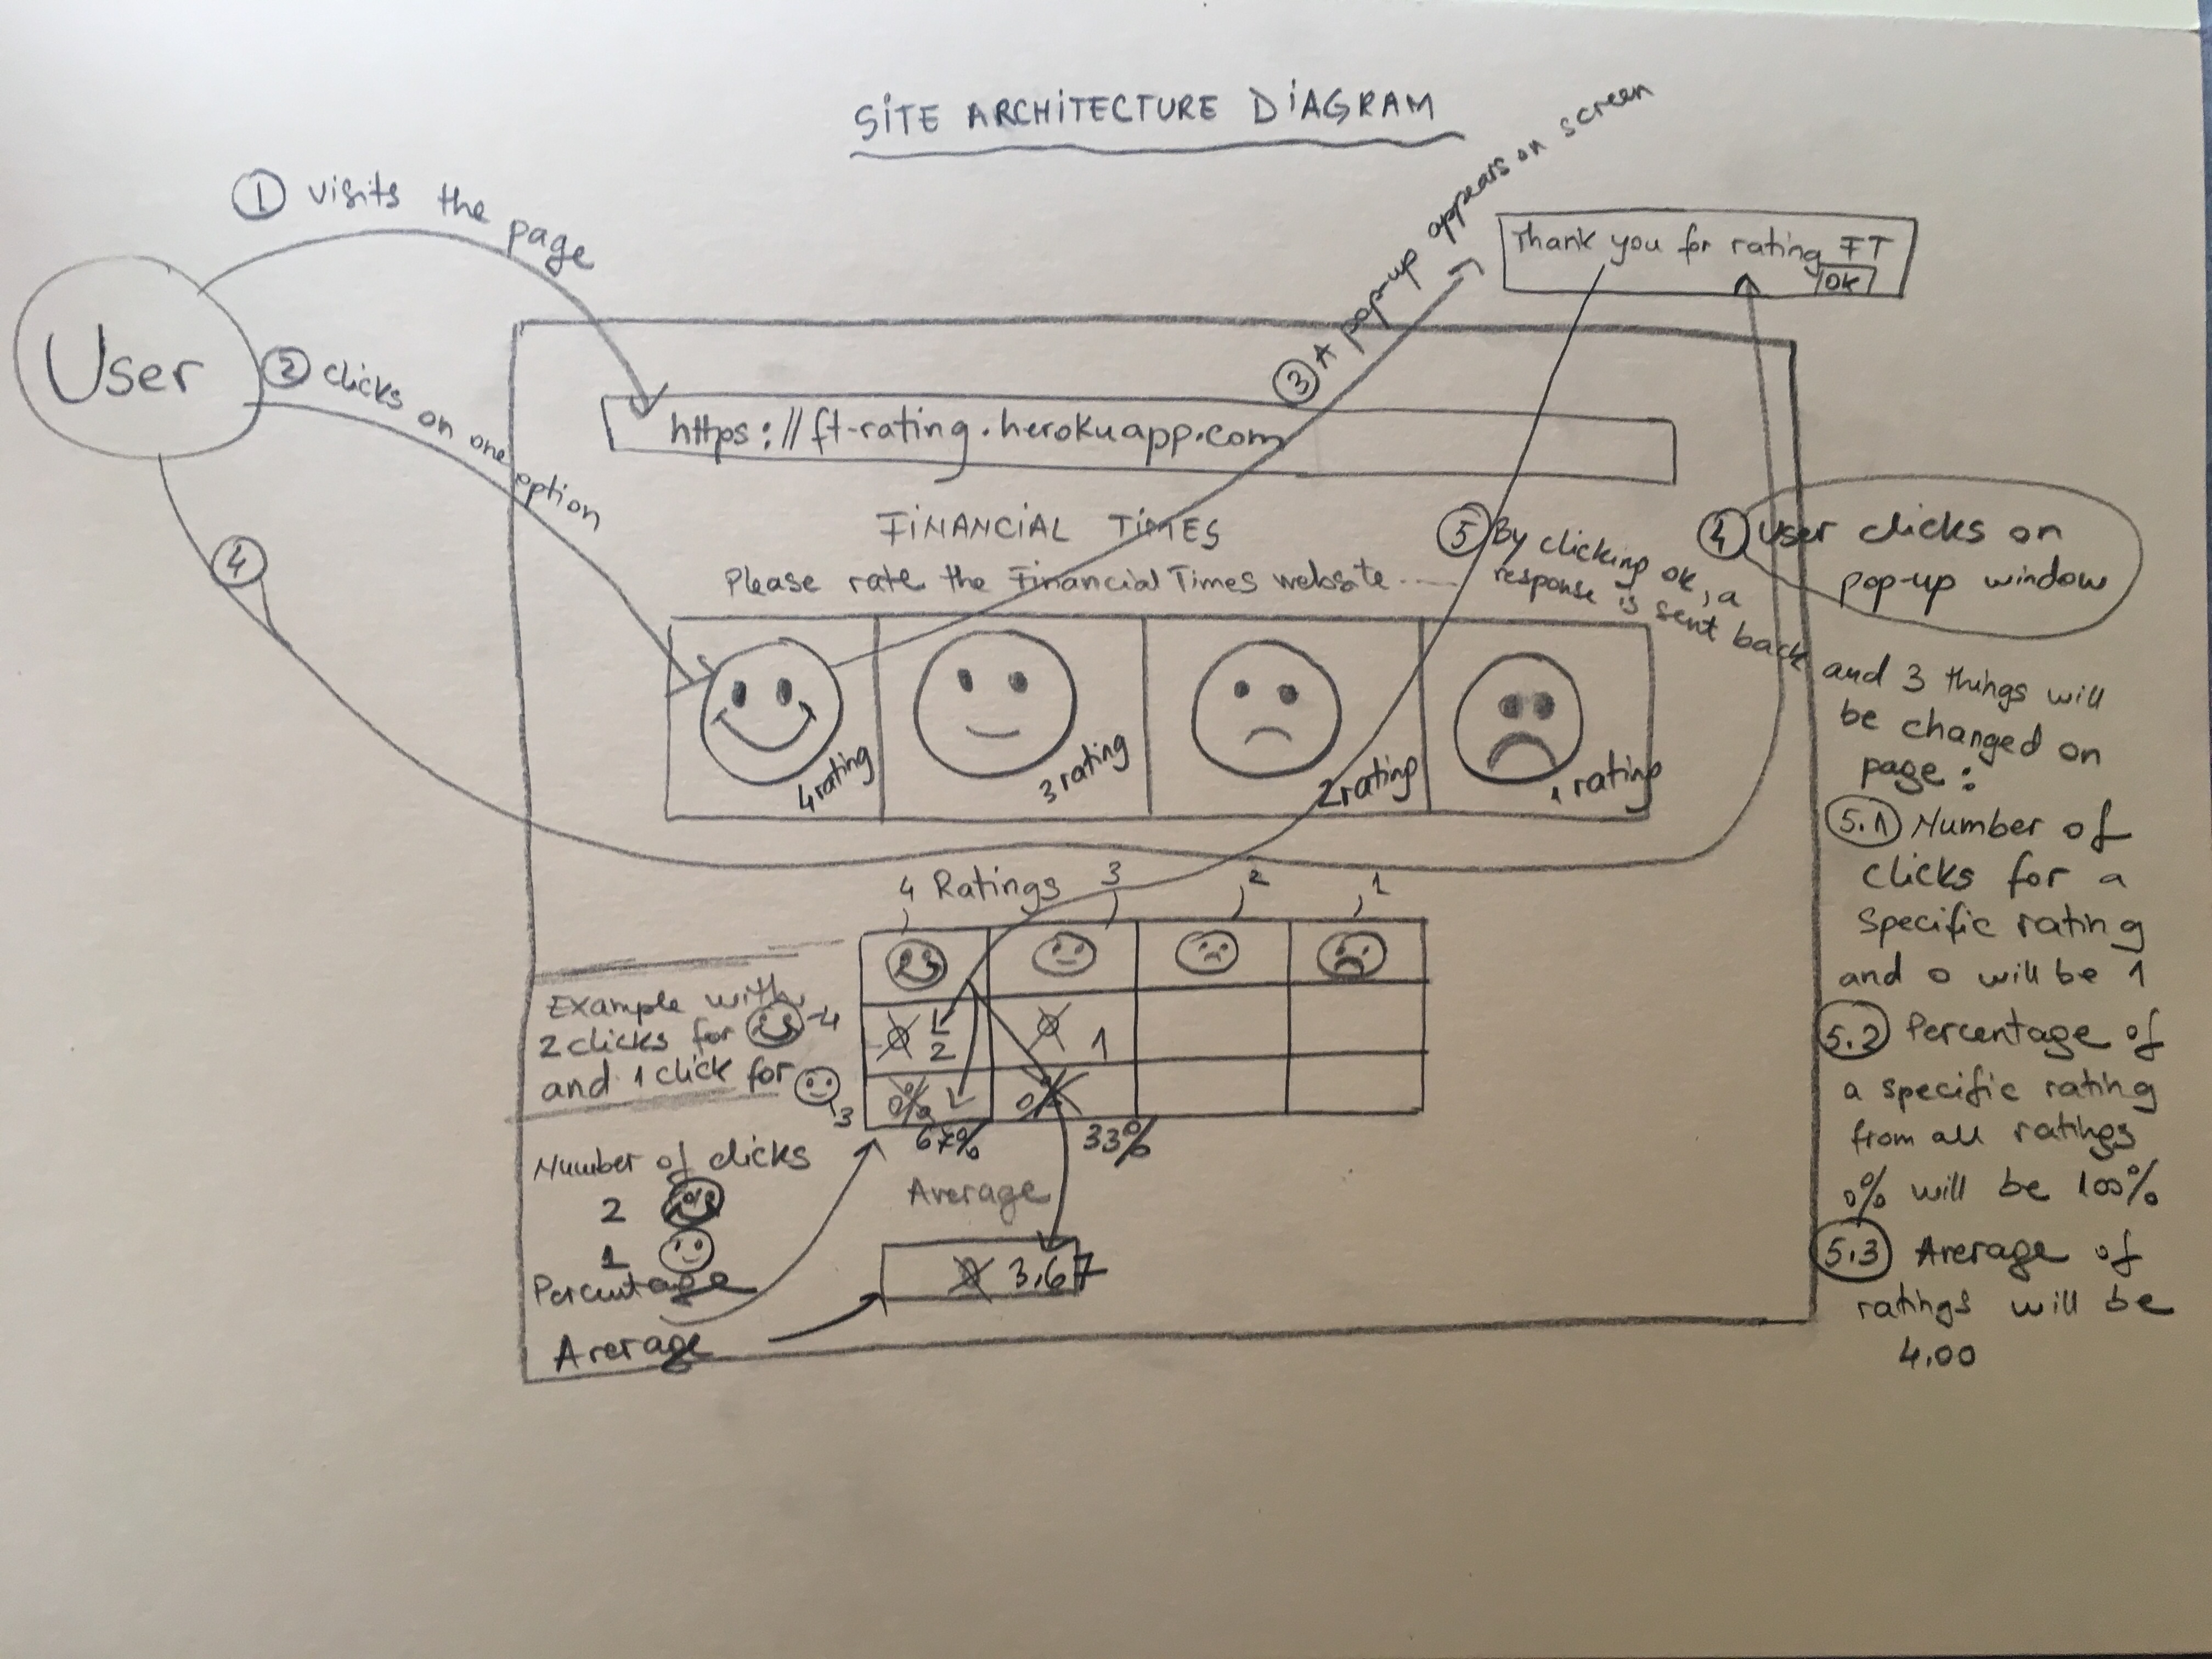 SITE ARCHITECTURE DIAGRAM
1 visits the page
User
2 clicks on one option
3 A pop-up appears on screen
Thank you for rating FT
OK
https://ft-rating.herokuapp.com
4
FINANCIAL TIMES
Please rate the Financial Times website.....
4 User clicks on
pop-up window
5 By clicking ok, a
response is sent back
and 3 things will
be changed on
page:
4 rating
3 rating
2 rating
1 rating
5.1 Number of
clicks for a
specific rating
and 0 will be 1
5.2 Percentage of
a specific rating
from all ratings
0% will be 100%
5.3 Average of
ratings will be
4.00
4 Ratings 3 2 1
Example with
2 clicks for -4
and 1 click for
3
0 2 0 1
0% 0%
67% 33%
Number of clicks
2
1
Percentage
Average
Average
0 3.67